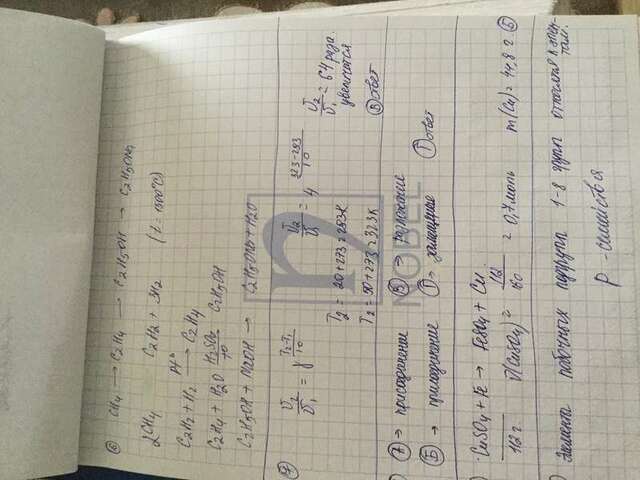 ⑥ CH4 → C2H4 → C2H5OH → C2H5ONa
2CH4 C2H2 + 3H2 (t = 1500°C)
C2H2 + H2 → C2H4
C2H4 + H2O H2SO4 C2H5OH
C2H5OH + NaOH → C2H5ONa + H2O
⑦ V2/V1 = γ T2-T1/10 V2/V1 = 4 323-293/10 V2/V1 = 64 раза
увеличится
T2 = 20+273 = 293K
T2 = 50+273 = 323K
В ответ
А → присоединение В → разложение
Б → присоединение Г → замещение Г ответ
CuSO4 + Fe → FeSO4 + Cu
112г ν(CuSO4) = 112/160 = 0,7 моль m(Cu) = 44,8 г. Б
Элемента побочных подгрупп 1-8 групп относятся к элем-
там.
p - семейства
NOBEL